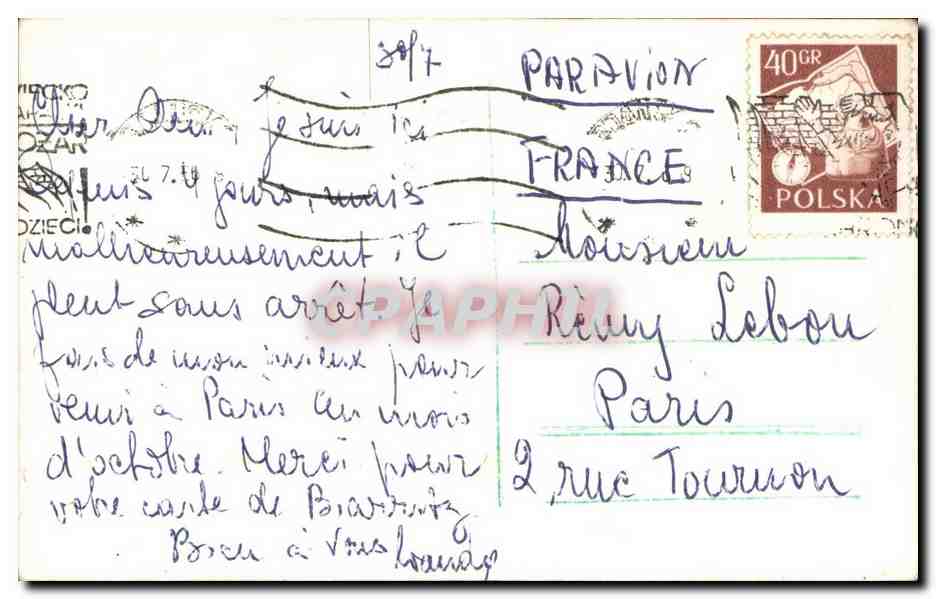 30/7
Cher Ami, je suis ici
depuis 4 jours, mais
malheureusement il
pleut sans arrêt. Je
fais de mon mieux pour
venir à Paris au mois
d'octobre. Merci pour
votre carte de Biarritz
Bien à Vous
PAR AVION
FRANCE
Monsieur
Rèmy Lebon
Paris
2, rue Tournon
40 GR
POLSKA
POŻAR
DZIECI!
CPAPHIL